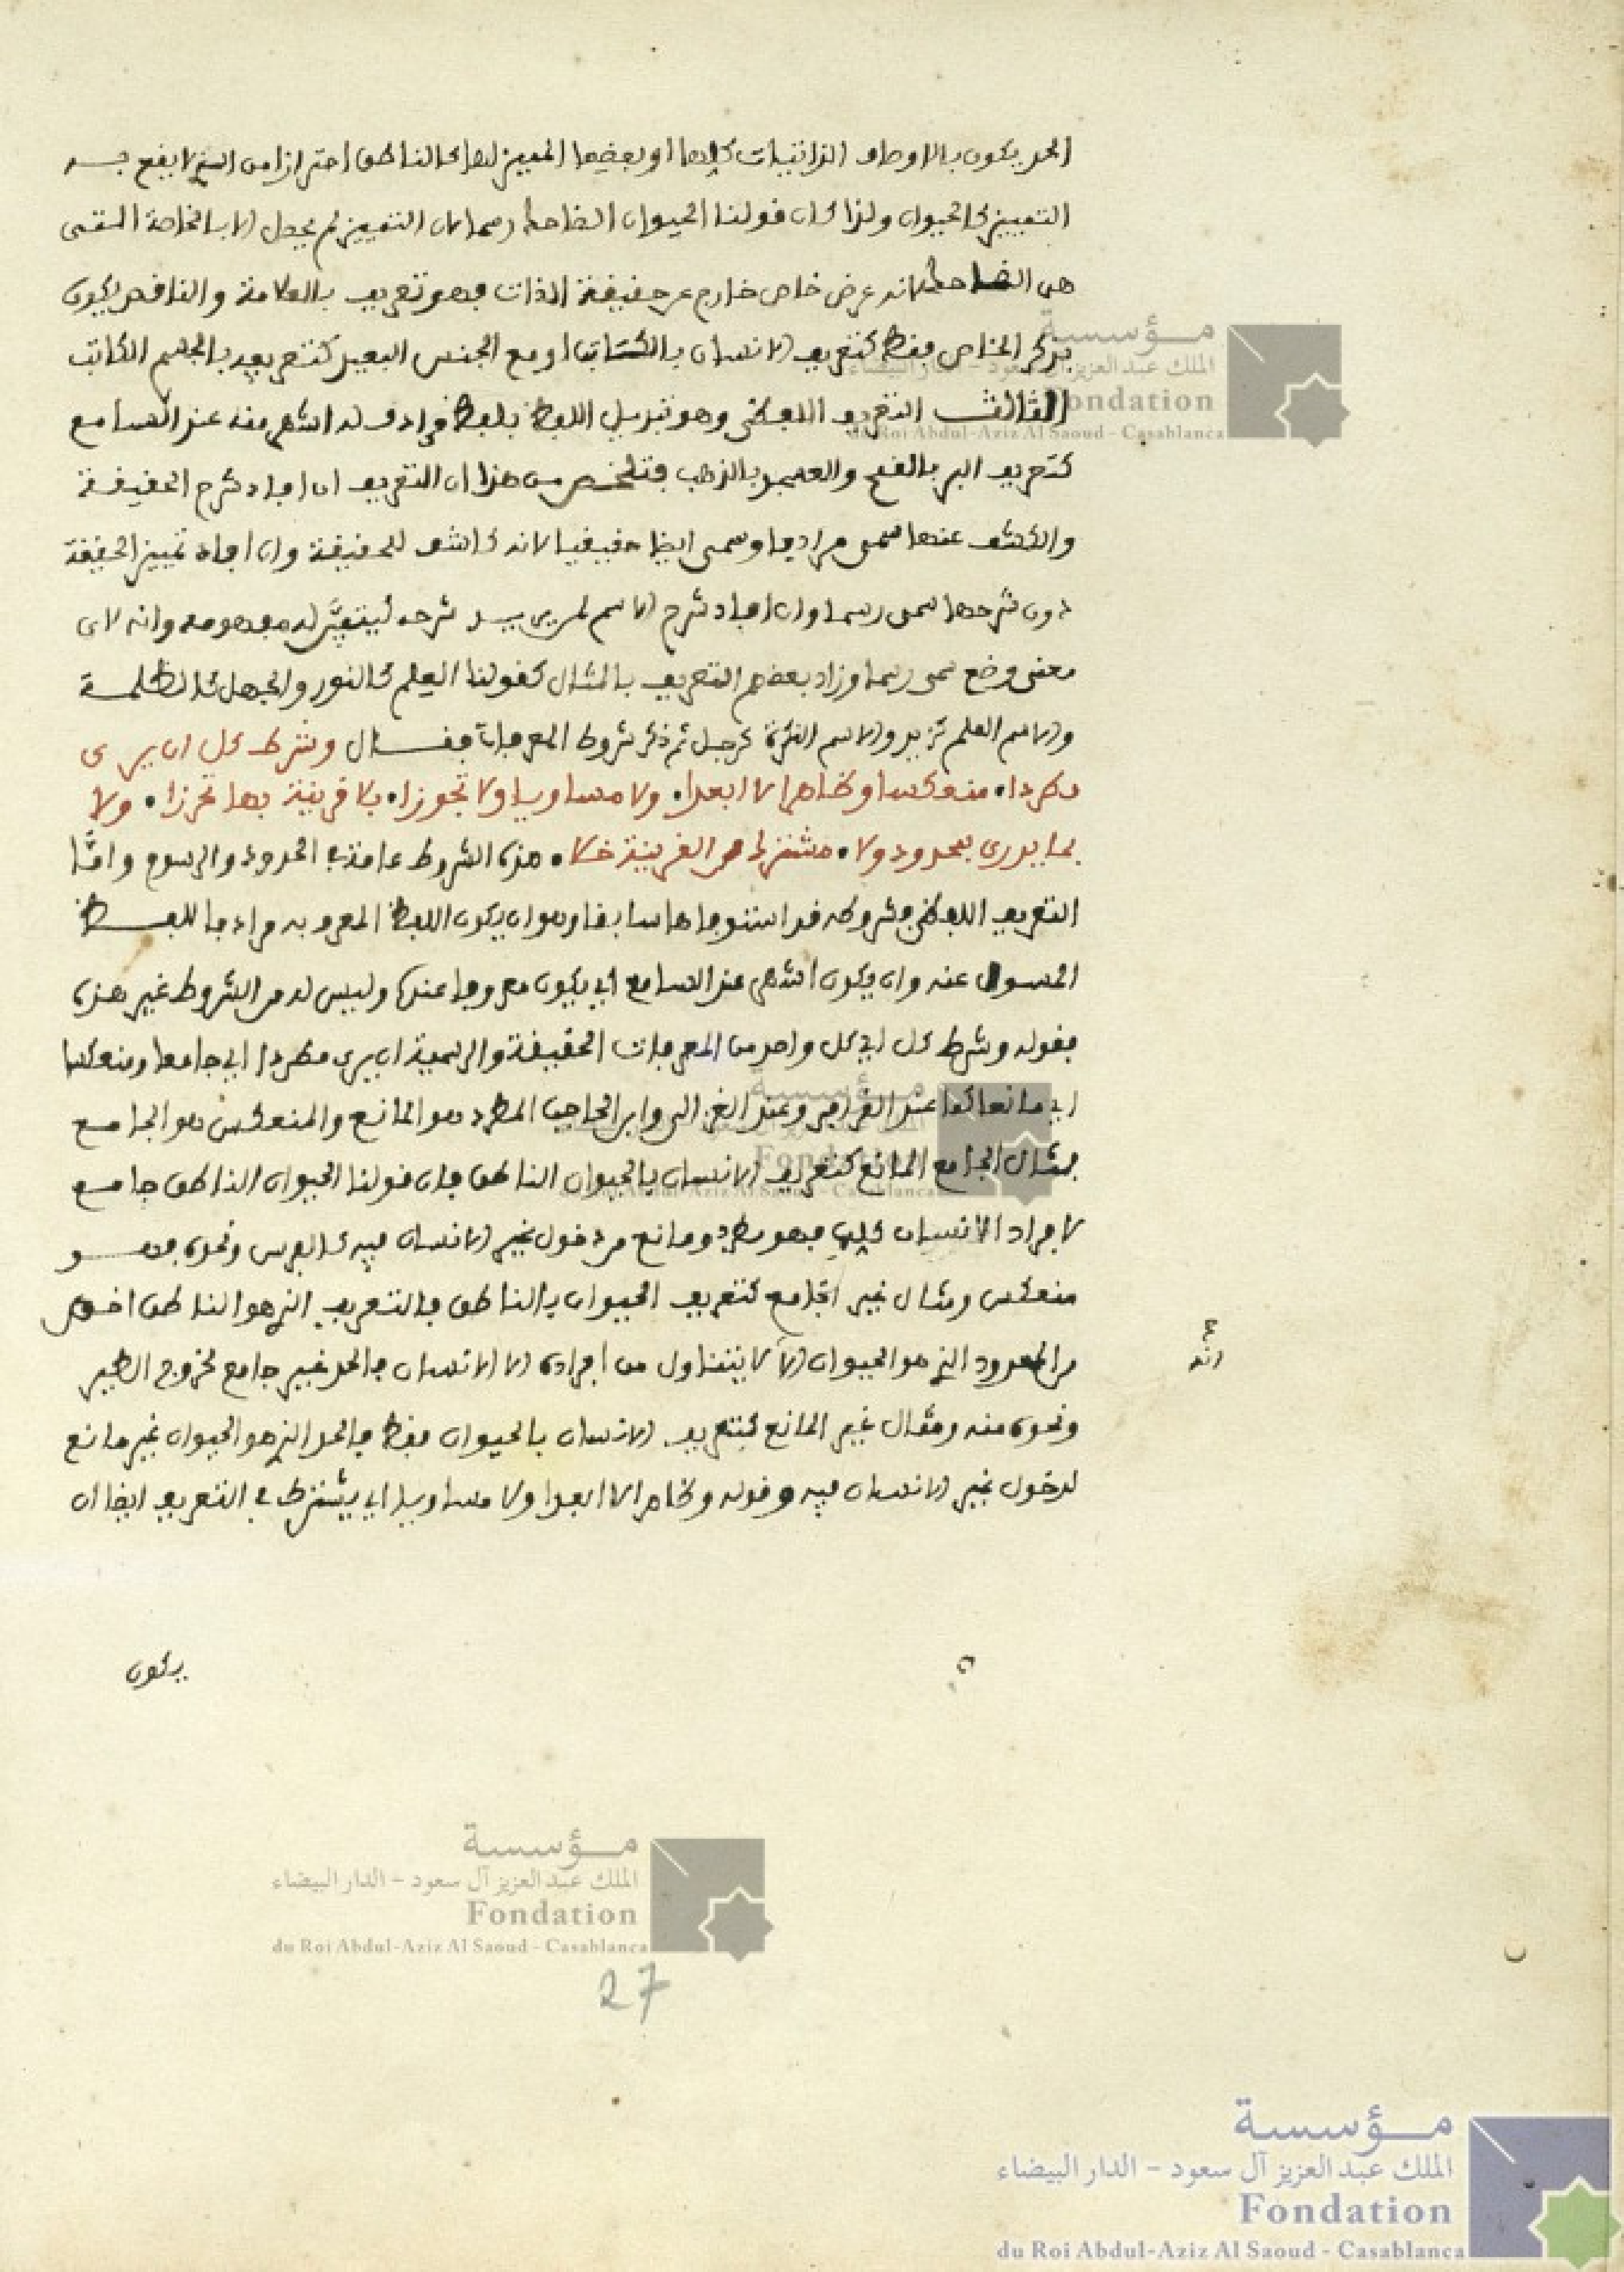 الحد يكون بالاوصاف الذاتيات كلها او بعضها المميز لها كالناطق احترازا من الذي لا يقع به
التمييز كالحيوان ولذا كان قولنا الحيوان الضاحك رسما لان التمييز لم يحصل الا بالخاصة التي
هي الضاحك لانه عرض خاص خارج عن حقيقة الذات فهو تعريف بالعلامة والناقص يكون
بذكر الخاص فقط كتعريف الانسان بالكاتب او مع الجنس البعيد كتعريفه بالجسم الكاتب
الثالث التعريف اللفظي وهو تبديل اللفظ بلفظ مرادف له اشهر منه عند السامع
كتعريف البر بالقمح والعسجد بالذهب فتلخص من هذا ان التعريف ان افاد شرح الحقيقة
والكشف عنها سمي حدا وسمي ايضا حقيقيا لانه كاشف للحقيقة وان افاد تمييز الحقيقة
دون شرحها سمي رسما وان افاد شرح الاسم لمن يريد شرحه ليتعين له مفهومه وانه لاي
معنى وضع سمي رسما وزاد بعضهم التعريف بالمثال كقولنا العلم كالنور والجهل كالظلمة
والاسم العلم كزيد والاسم النكرة كرجل ثم ذكر شروط المعرفات فقال وشرط كل ان يرى
مطردا • منعكسا وظاهرا لا ابعدا • ولا مساويا ولا تجوزا • بلا قرينة بها تحرزا • ولا
بما يدرى بمحدود ولا • مشترك من القرينة خلا • هذه الشروط عامة في الحدود والرسوم واما
التعريف اللفظي فشروطه قد استوفاها سابقا وهو ان يكون اللفظ المعرف به مرادفا للفظ
المسول عنه وان يكون اشهر عند السامع اي يكون معروفا عنده وليس له من الشروط غير هذه
فقوله وشرط كل اي كل واحد من المعرفات الحقيقة والرسمية ان يرى مطردا اي جامعا ومنعكسا
اي مانعا كما عند القرافي وعند الغزالي وابن الحاجب المطرد هو المانع والمنعكس هو الجامع
فمثال الجامع المانع كتعريف الانسان بالحيوان الناطق فان قولنا الحيوان الناطق جامع
لافراد الانسان كلها فهو مطرد ومانع من دخول غير الانسان فيه كالفرس ونحوه فهو
منعكس ومثال غير الجامع كتعريف الحيوان بالناطق فالتعريف الذي هو الناطق اخص
من المحدود الذي هو الحيوان اذ لا يتناول من افراده الا الانسان فالحد غير جامع لخروج الطير
ونحوه منه ومثال غير المانع كتعريف الانسان بالحيوان فقط فالحد الذي هو الحيوان غير مانع
لدخول غير الانسان فيه وقوله وظاهرا لا ابعدا ولا مساويا اي يشترط في التعريف ايضا ان
يكون
27
مؤسسة
الملك عبد العزيز آل سعود - الدار البيضاء
Fondation
du Roi Abdul-Aziz Al Saoud - Casablanca